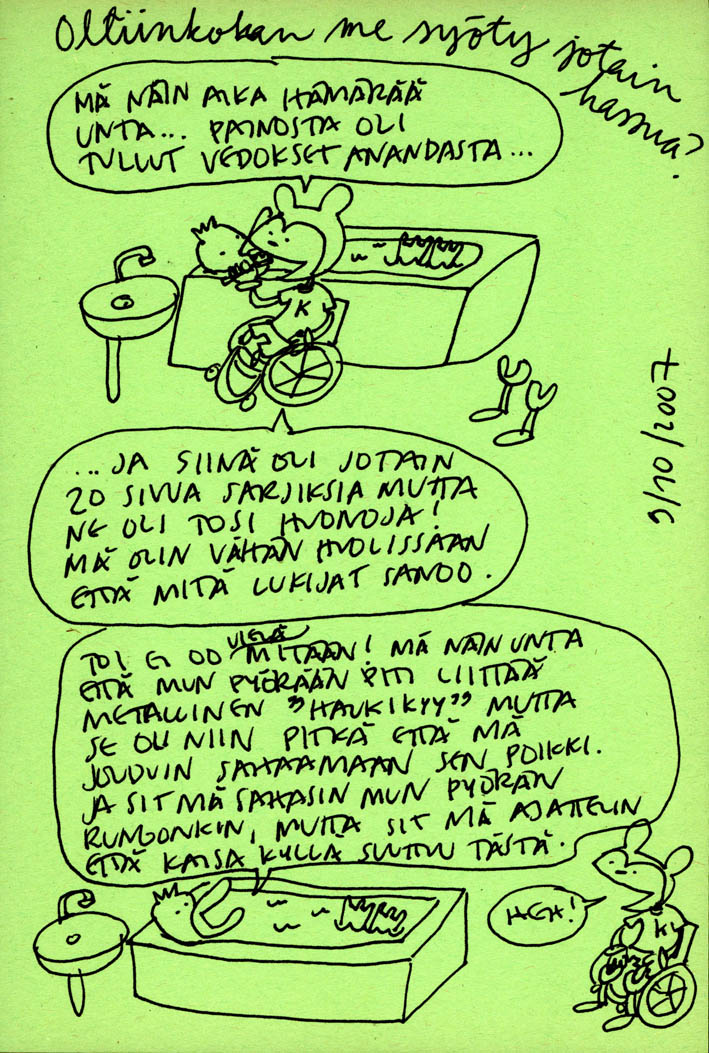 Oltiinkohan me syöty jotain
hassua?
MÄ NÄIN AIKA HÄMÄRÄÄ
UNTA... PAINOSTA OLI
TULLUT VEDOKSET ANANDASTA...
K
...JA SIINÄ OLI JOTAIN
20 SIVUA SARJIKSIA MUTTA
NE OLI TOSI HUONOJA!
MÄ OLIN VÄHÄN HUOLISSAAN
ETTÄ MITÄ LUKIJAT SANOO.
9/10/2007
TOI EI OO VIELÄ MITÄÄN! MÄ NÄIN UNTA
ETTÄ MUN PYÖRÄÄN PITI LIITTÄÄ
METALLINEN "HAUKIKYY" MUTTA
SE OLI NIIN PITKÄ ETTÄ MÄ
JOUDUIN SAHAAMAAN SEN POIKKI.
JA SIT MÄ SAHASIN MUN PYÖRÄN
RUNGONKIN, MUTTA SIT MÄ AJATTELIN
ETTÄ KAISA KYLLÄ SUUTTUU TÄSTÄ.
HEH!